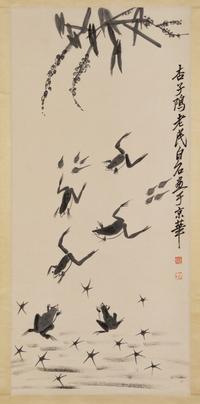 杏子隖老民白石畫于京華